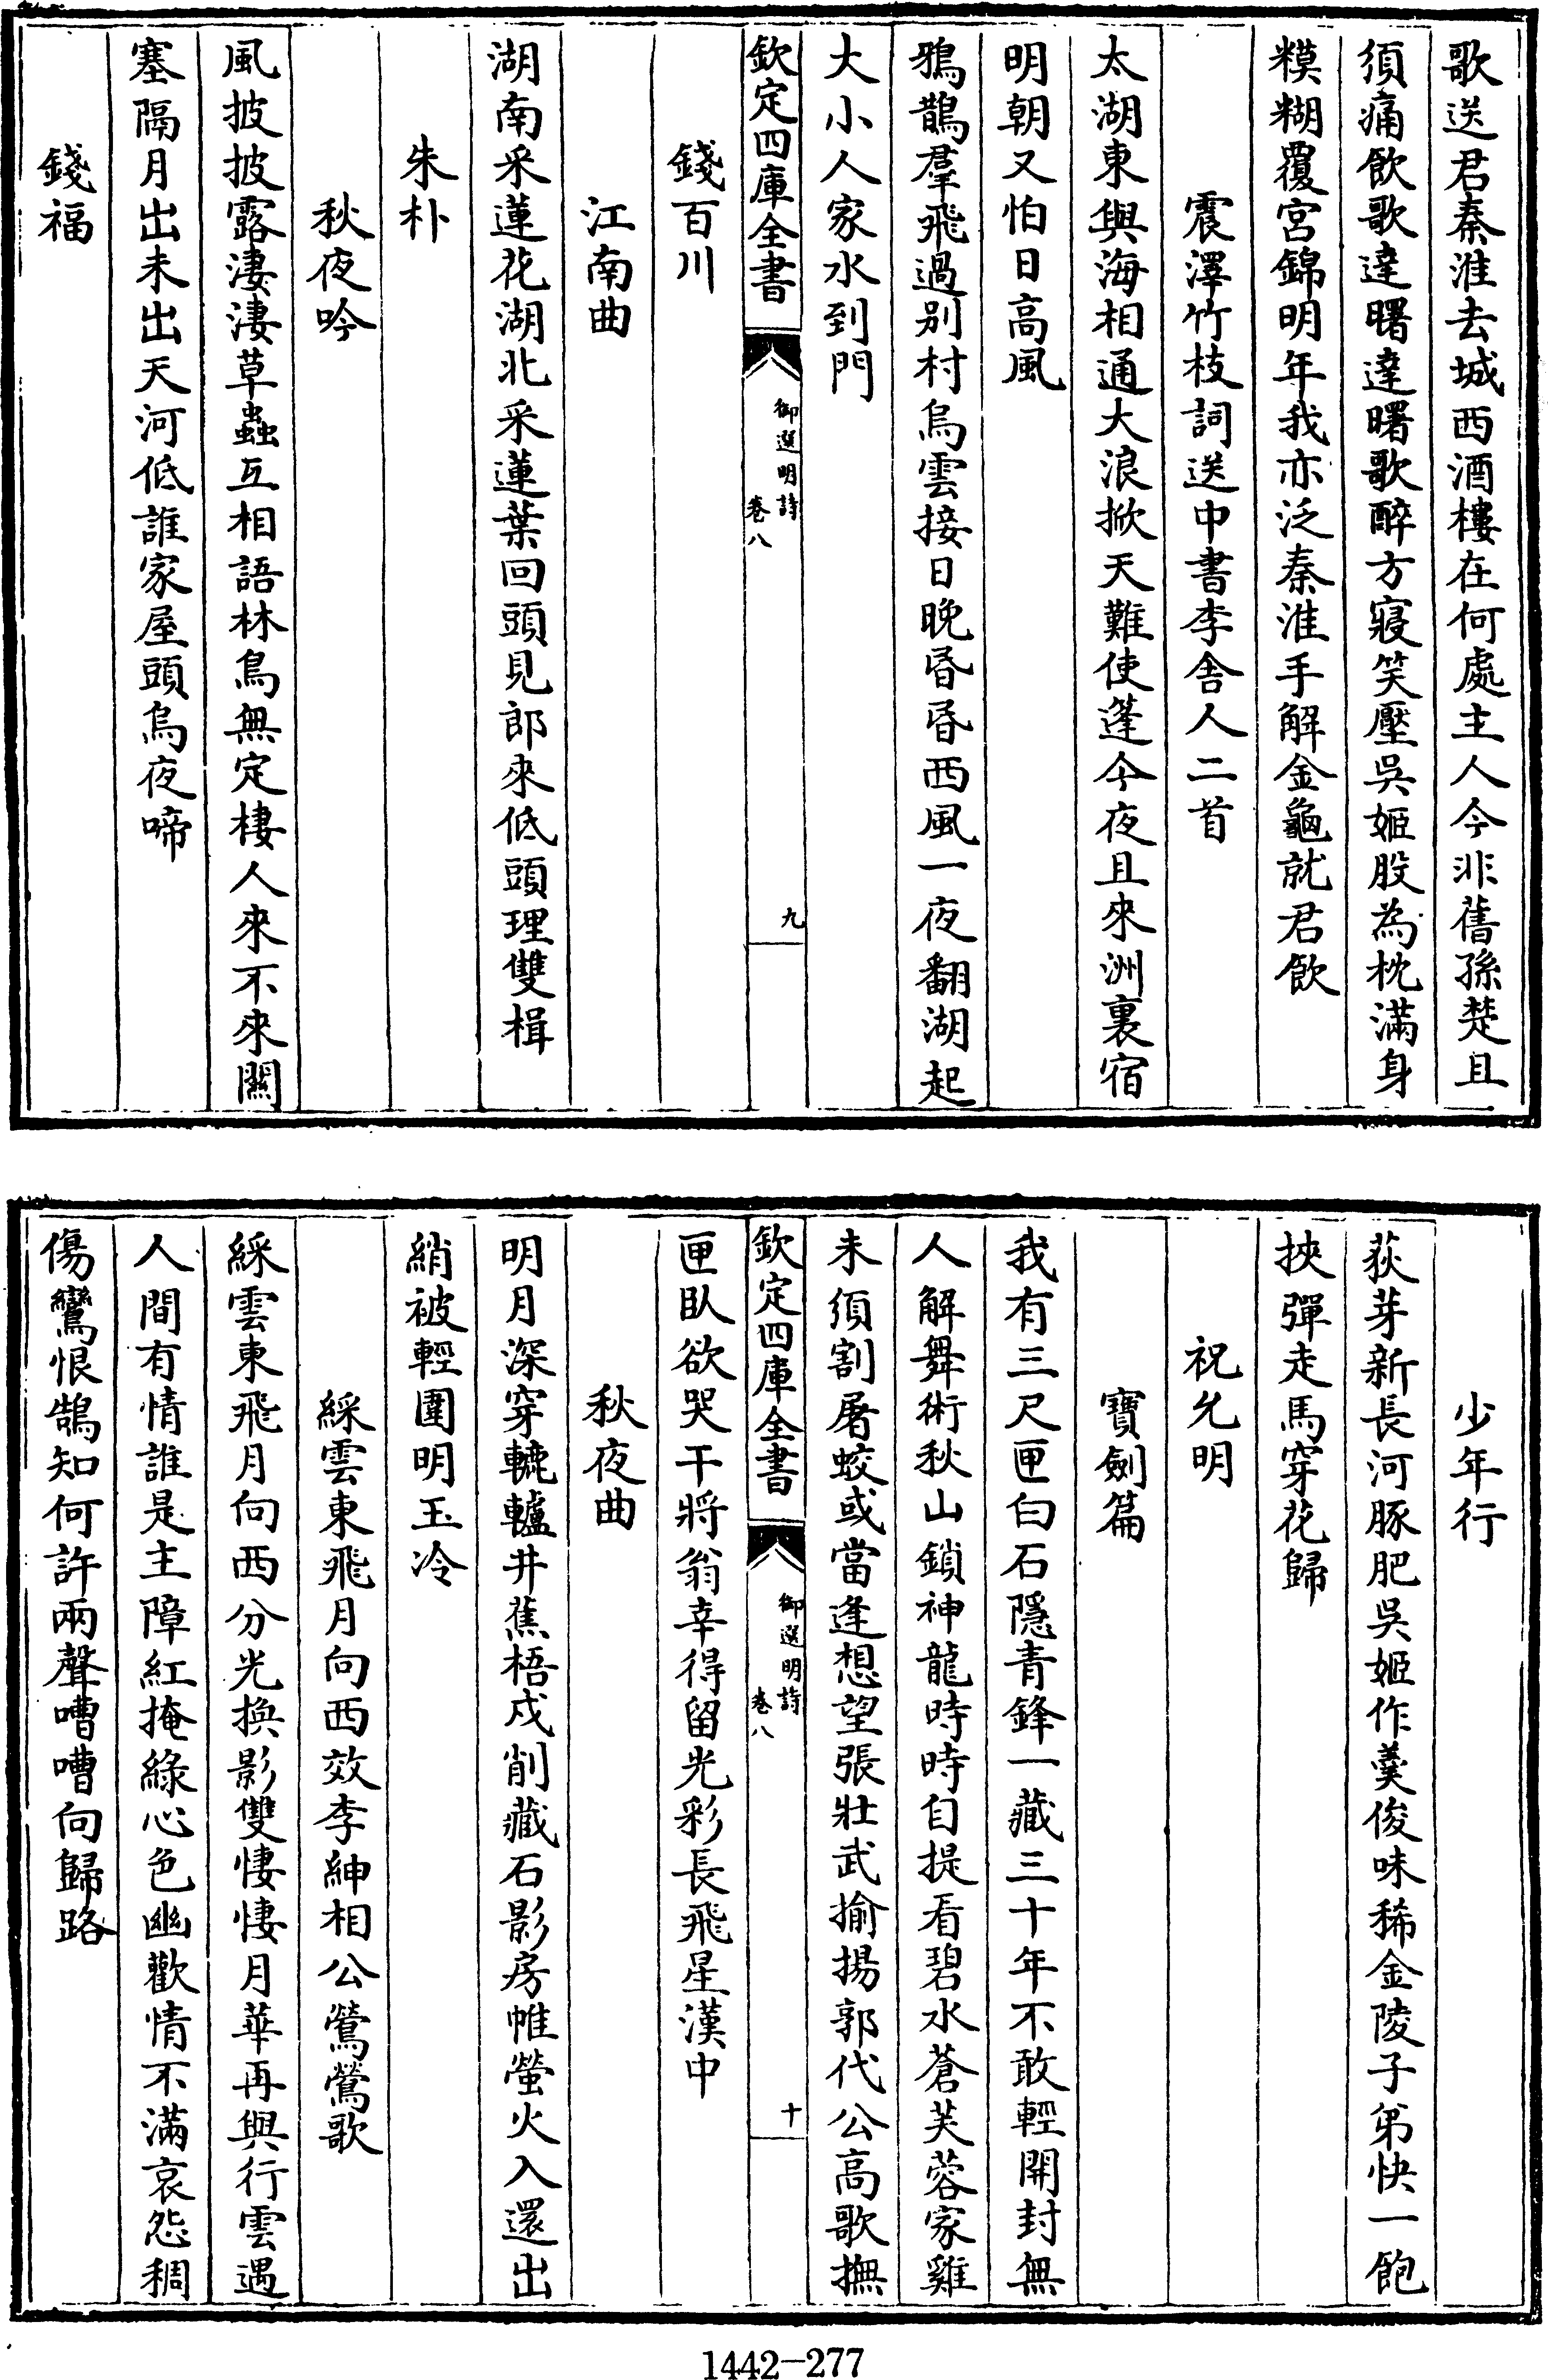 歌送君秦淮去城西酒樓在何處主人今非舊孫楚且
須痛飲歌達曙達曙歌醉方寢笑壓吳姬股為枕滿身
糢糊覆宮錦明年我亦泛秦淮手解金龜就君飲
震澤竹枝詞送中書李舍人二首
太湖東與海相通大浪掀天難使蓬今夜且來洲裏宿
明朝又怕日高風
鴉鵲羣飛過别村烏雲接日晚昏昏西風一夜翻湖起
大小人家水到門
欽定四庫全書
御選明詩
卷八
九
錢百川
江南曲
湖南采蓮花湖北采蓮葉回頭見郎來低頭理雙楫
朱朴
秋夜吟
風披披露淒淒草蟲互相語林鳥無定棲人來不來關
塞隔月出未出天河低誰家屋頭烏夜啼
錢福
少年行
荻芽新長河豚肥吳姬作羹俊味稀金陵子弟快一飽
挾彈走馬穿花歸
祝允明
寶劍篇
我有三尺匣白石隱青鋒一藏三十年不敢輕開封無
人解舞術秋山鎖神龍時時自提看碧水蒼芙蓉家雞
未須割屠蛟或當逢想望張壯武揄揚郭代公高歌撫
欽定四庫全書
御選明詩
卷八
十
匣臥欲哭干將翁幸得留光彩長飛星漢中
秋夜曲
明月深穿轆轤井蕉梧戍削藏石影房帷螢火入還出
綃被輕圍明玉冷
綵雲東飛月向西效李紳相公鶯鶯歌
綵雲東飛月向西分光換影雙悽悽月華再與行雲遇
人間有情誰是主障紅掩綠心色幽歡情不滿哀怨稠
傷鸞恨鵠知何許兩聲嘈嘈向歸路
1442-277